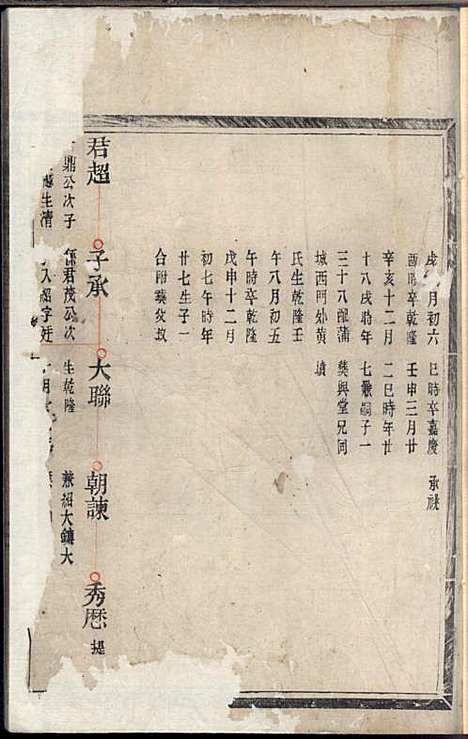 月初六
酉時卒乾隆
辛亥十二月
十八戌時年
三十八配蒲
城西門外黄
氏生乾隆壬
午八月初五
午時卒乾隆
戊申十二月
初七午時年
廿七生子一
合附葬於故
巳時卒嘉慶
壬申三月廿
二巳時年廿
七嗣子一
葬與堂兄同
墳
承祧
君超
子承
大聯
朝諫
秀歷
提
鼎公次子
君茂公次
生乾隆
兼紹大鎮大
生清
入紹字廷